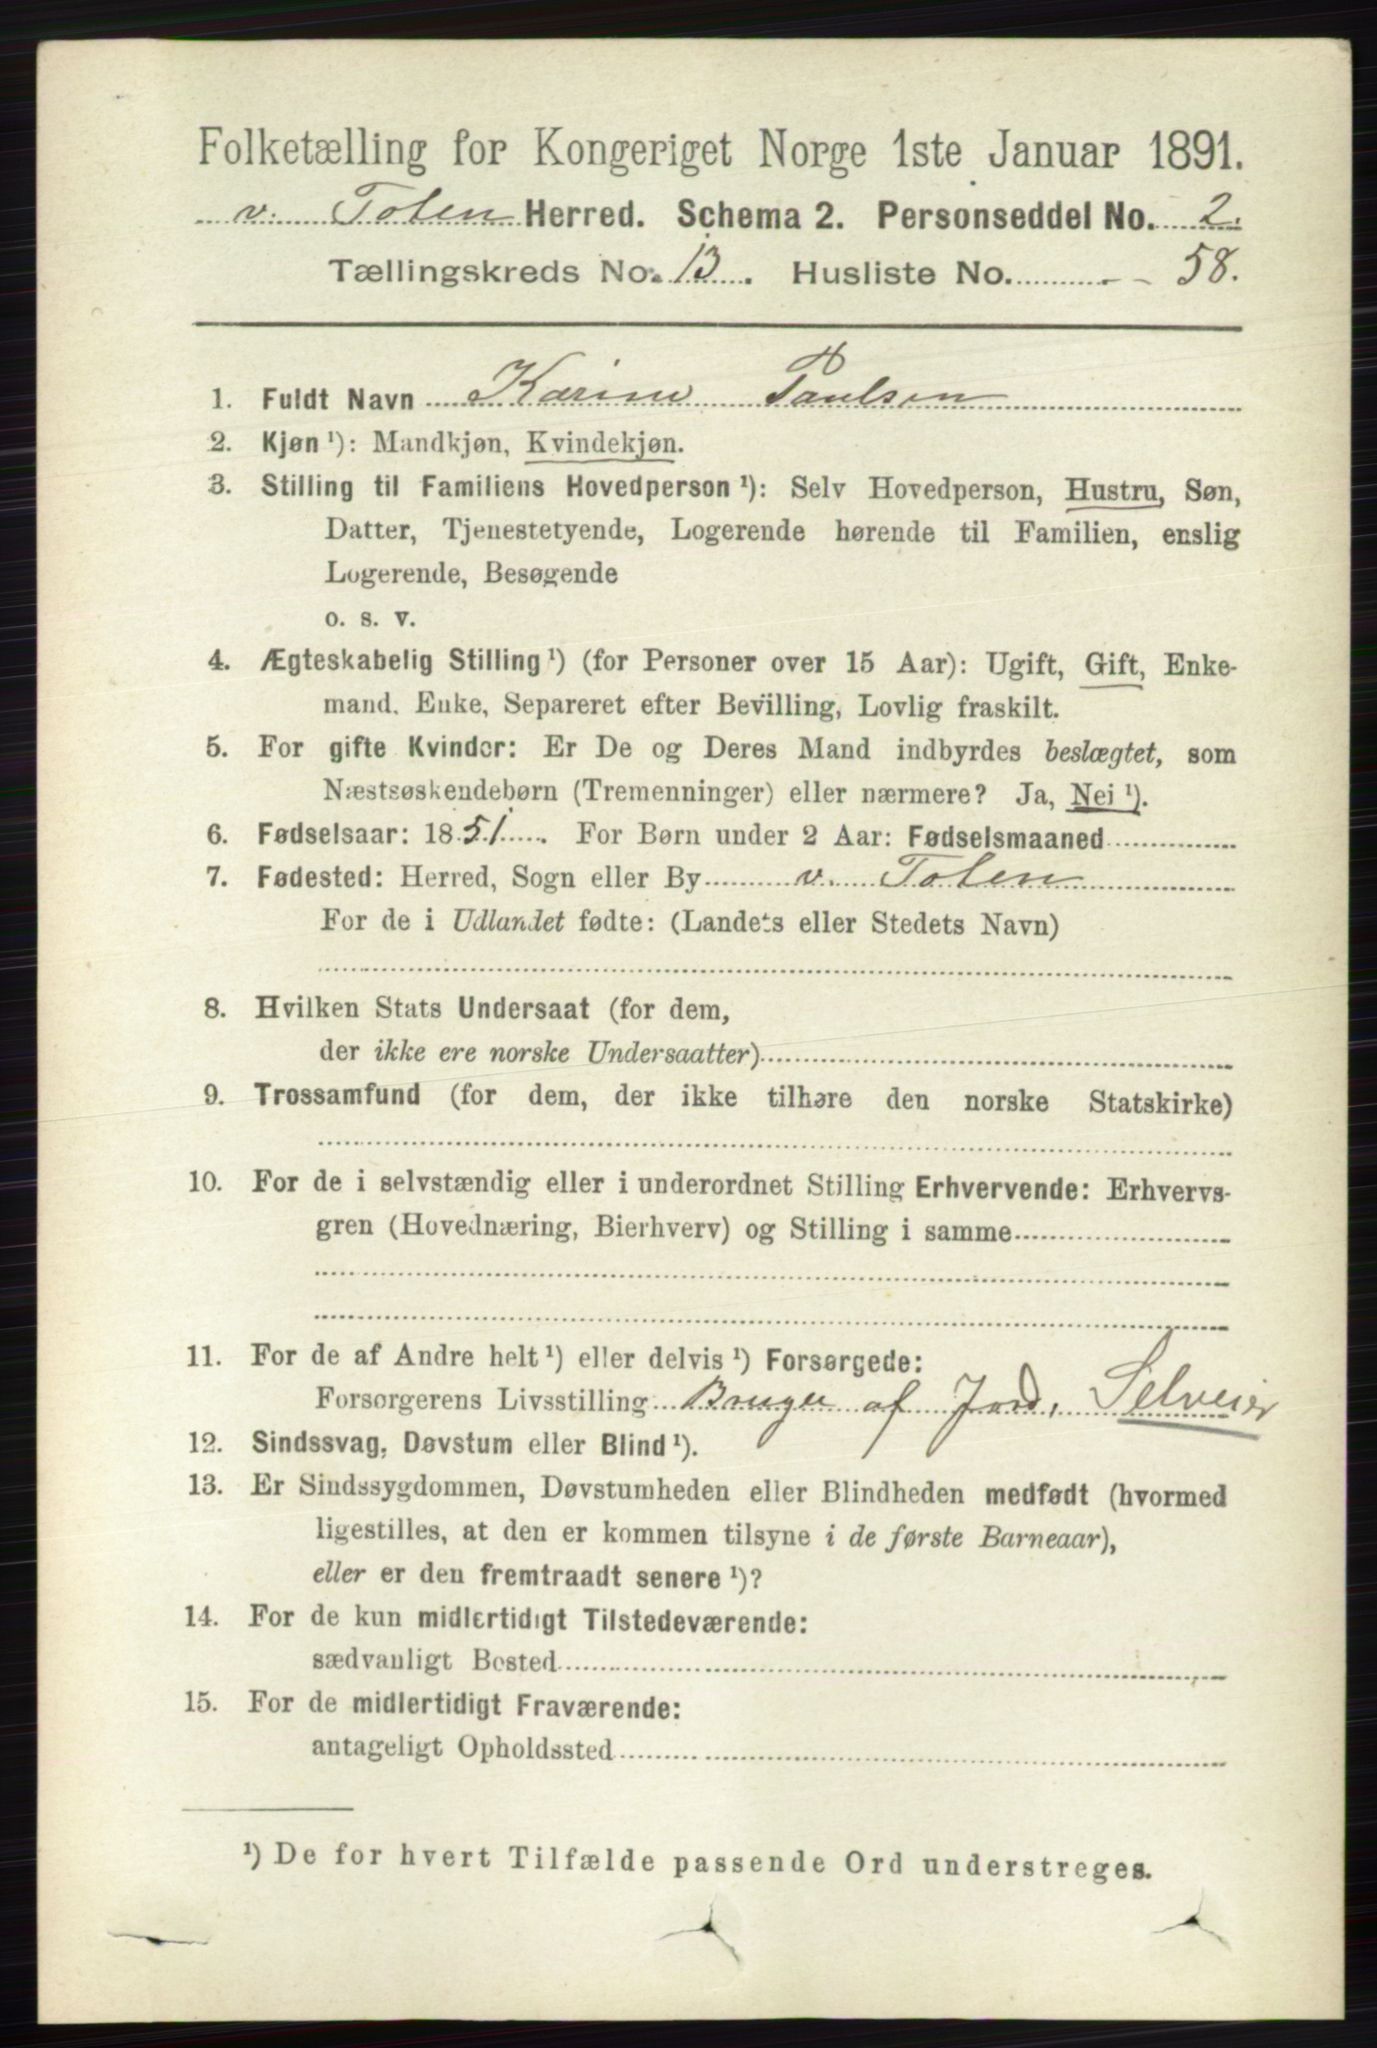 Folketælling for Kongeriget Norge 1ste Januar 1891.
v. Toten Herred. Schema 2. Personseddel No. 2.
Tællingskreds No. 13. Husliste No. - 58.
1. Fuldt Navn Karine Paulsen
2. Kjøn ¹): Mandkjøn, Kvindekjøn.
3. Stilling til Familiens Hovedperson ¹): Selv Hovedperson, Hustru, Søn,
Datter, Tjenestetyende, Logerende hørende til Familien, enslig
Logerende, Besøgende
o. s. v.
4. Ægteskabelig Stilling ¹) (for Personer over 15 Aar): Ugift, Gift, Enke-
mand, Enke, Separeret efter Bevilling, Lovlig fraskilt.
5. For gifte Kvinder: Er De og Deres Mand indbyrdes beslægtet, som
Næstsøskendebørn (Tremenninger) eller nærmere? Ja, Nei ¹).
6. Fødselsaar: 1851. For Børn under 2 Aar: Fødselsmaaned
7. Fødested: Herred, Sogn eller By v. Toten
For de i Udlandet fødte: (Landets eller Stedets Navn)
8. Hvilken Stats Undersaat (for dem,
der ikke ere norske Undersaatter)
9. Trossamfund (for dem, der ikke tilhøre den norske Statskirke)
10. For de i selvstændig eller i underordnet Stilling Erhvervende: Erhvervs-
gren (Hovednæring, Bierhverv) og Stilling i samme
11. For de af Andre helt ¹) eller delvis ¹) Forsørgede:
Forsørgerens Livsstilling Bruger af Jord, Selveier
12. Sindssvag, Døvstum eller Blind ¹).
13. Er Sindssygdommen, Døvstumheden eller Blindheden medfødt (hvormed
ligestilles, at den er kommen tilsyne i de første Barneaar),
eller er den fremtraadt senere ¹)?
14. For de kun midlertidigt Tilstedeværende:
sædvanligt Bosted
15. For de midlertidigt Fraværende:
antageligt Opholdssted
¹) De for hvert Tilfælde passende Ord understreges.